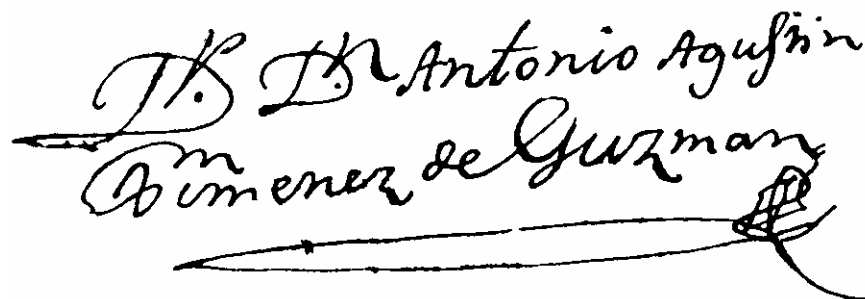 Dr. Dn. Antonio Agustin
Ximenez de Guzman